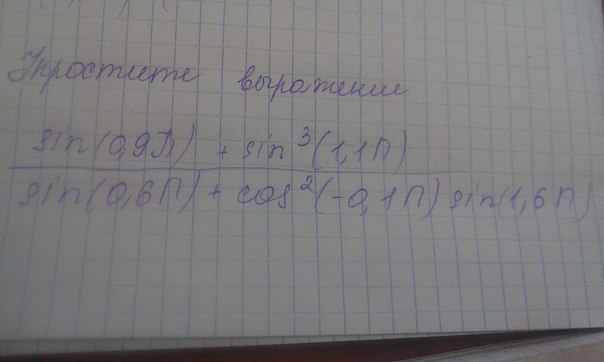 Упростите выражение
sin(0,9П) + sin³(1,1П)
sin(0,6П) + cos²(-0,1П) sin(1,6П)